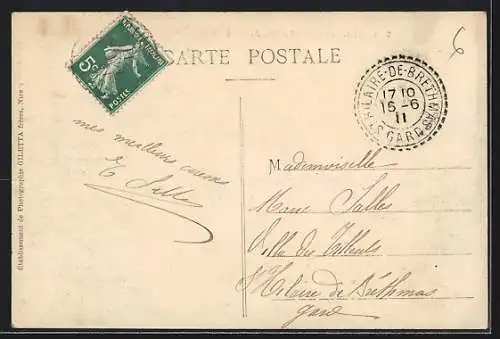 CARTE POSTALE
6
5c
POSTES
ST HILAIRE-DE-BRETHMAS
17 10
16-6
11
GARD
mes meilleurs
E Salles
Mademoiselle
Marie Salles
Villa des Tilleuls
St Hilaire de Bréthmas
Gard
Etablissement de Photographie GILETTA frères, Nice